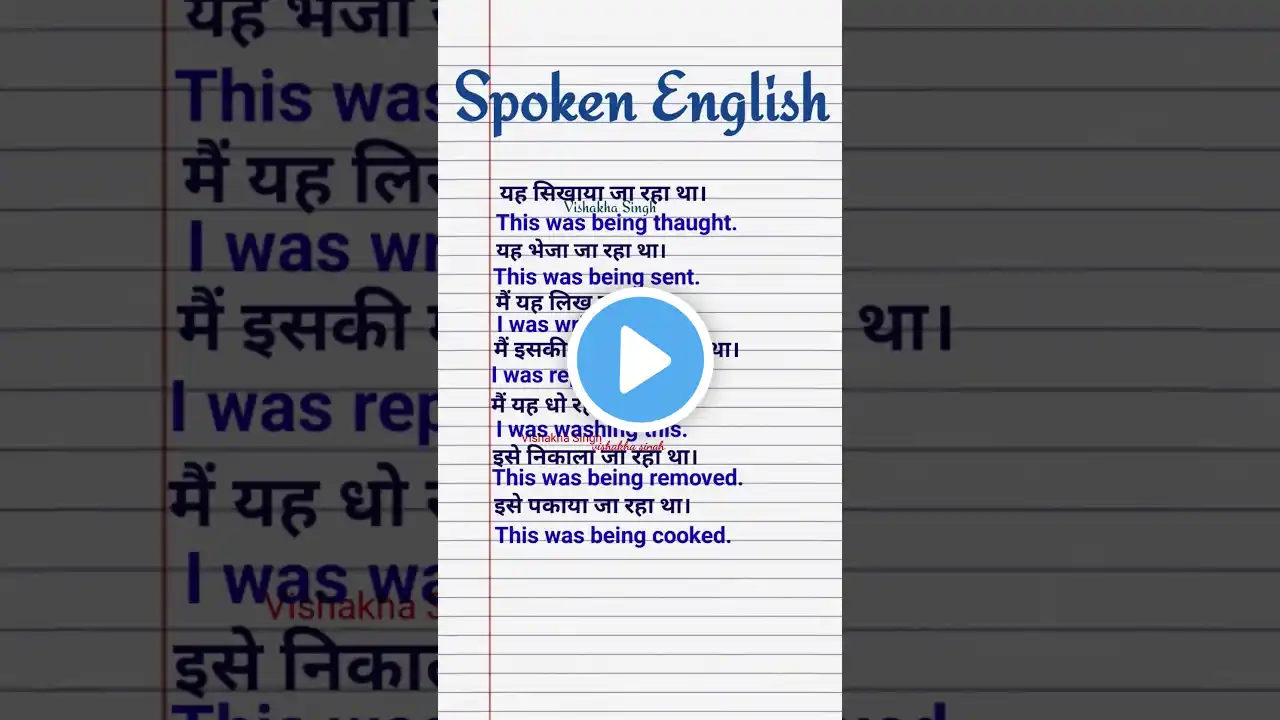 Spoken English
यह सिखाया जा रहा था।
Vishakha Singh
This was being thaught.
यह भेजा जा रहा था।
This was being sent.
मैं यह लिख
I was
मैं इसकी था।
I was
मैं यह धो
I was washing this.
Vishakha Singh
vishakha singh
इसे निकाला जा रहा था।
This was being removed.
इसे पकाया जा रहा था।
This was being cooked.